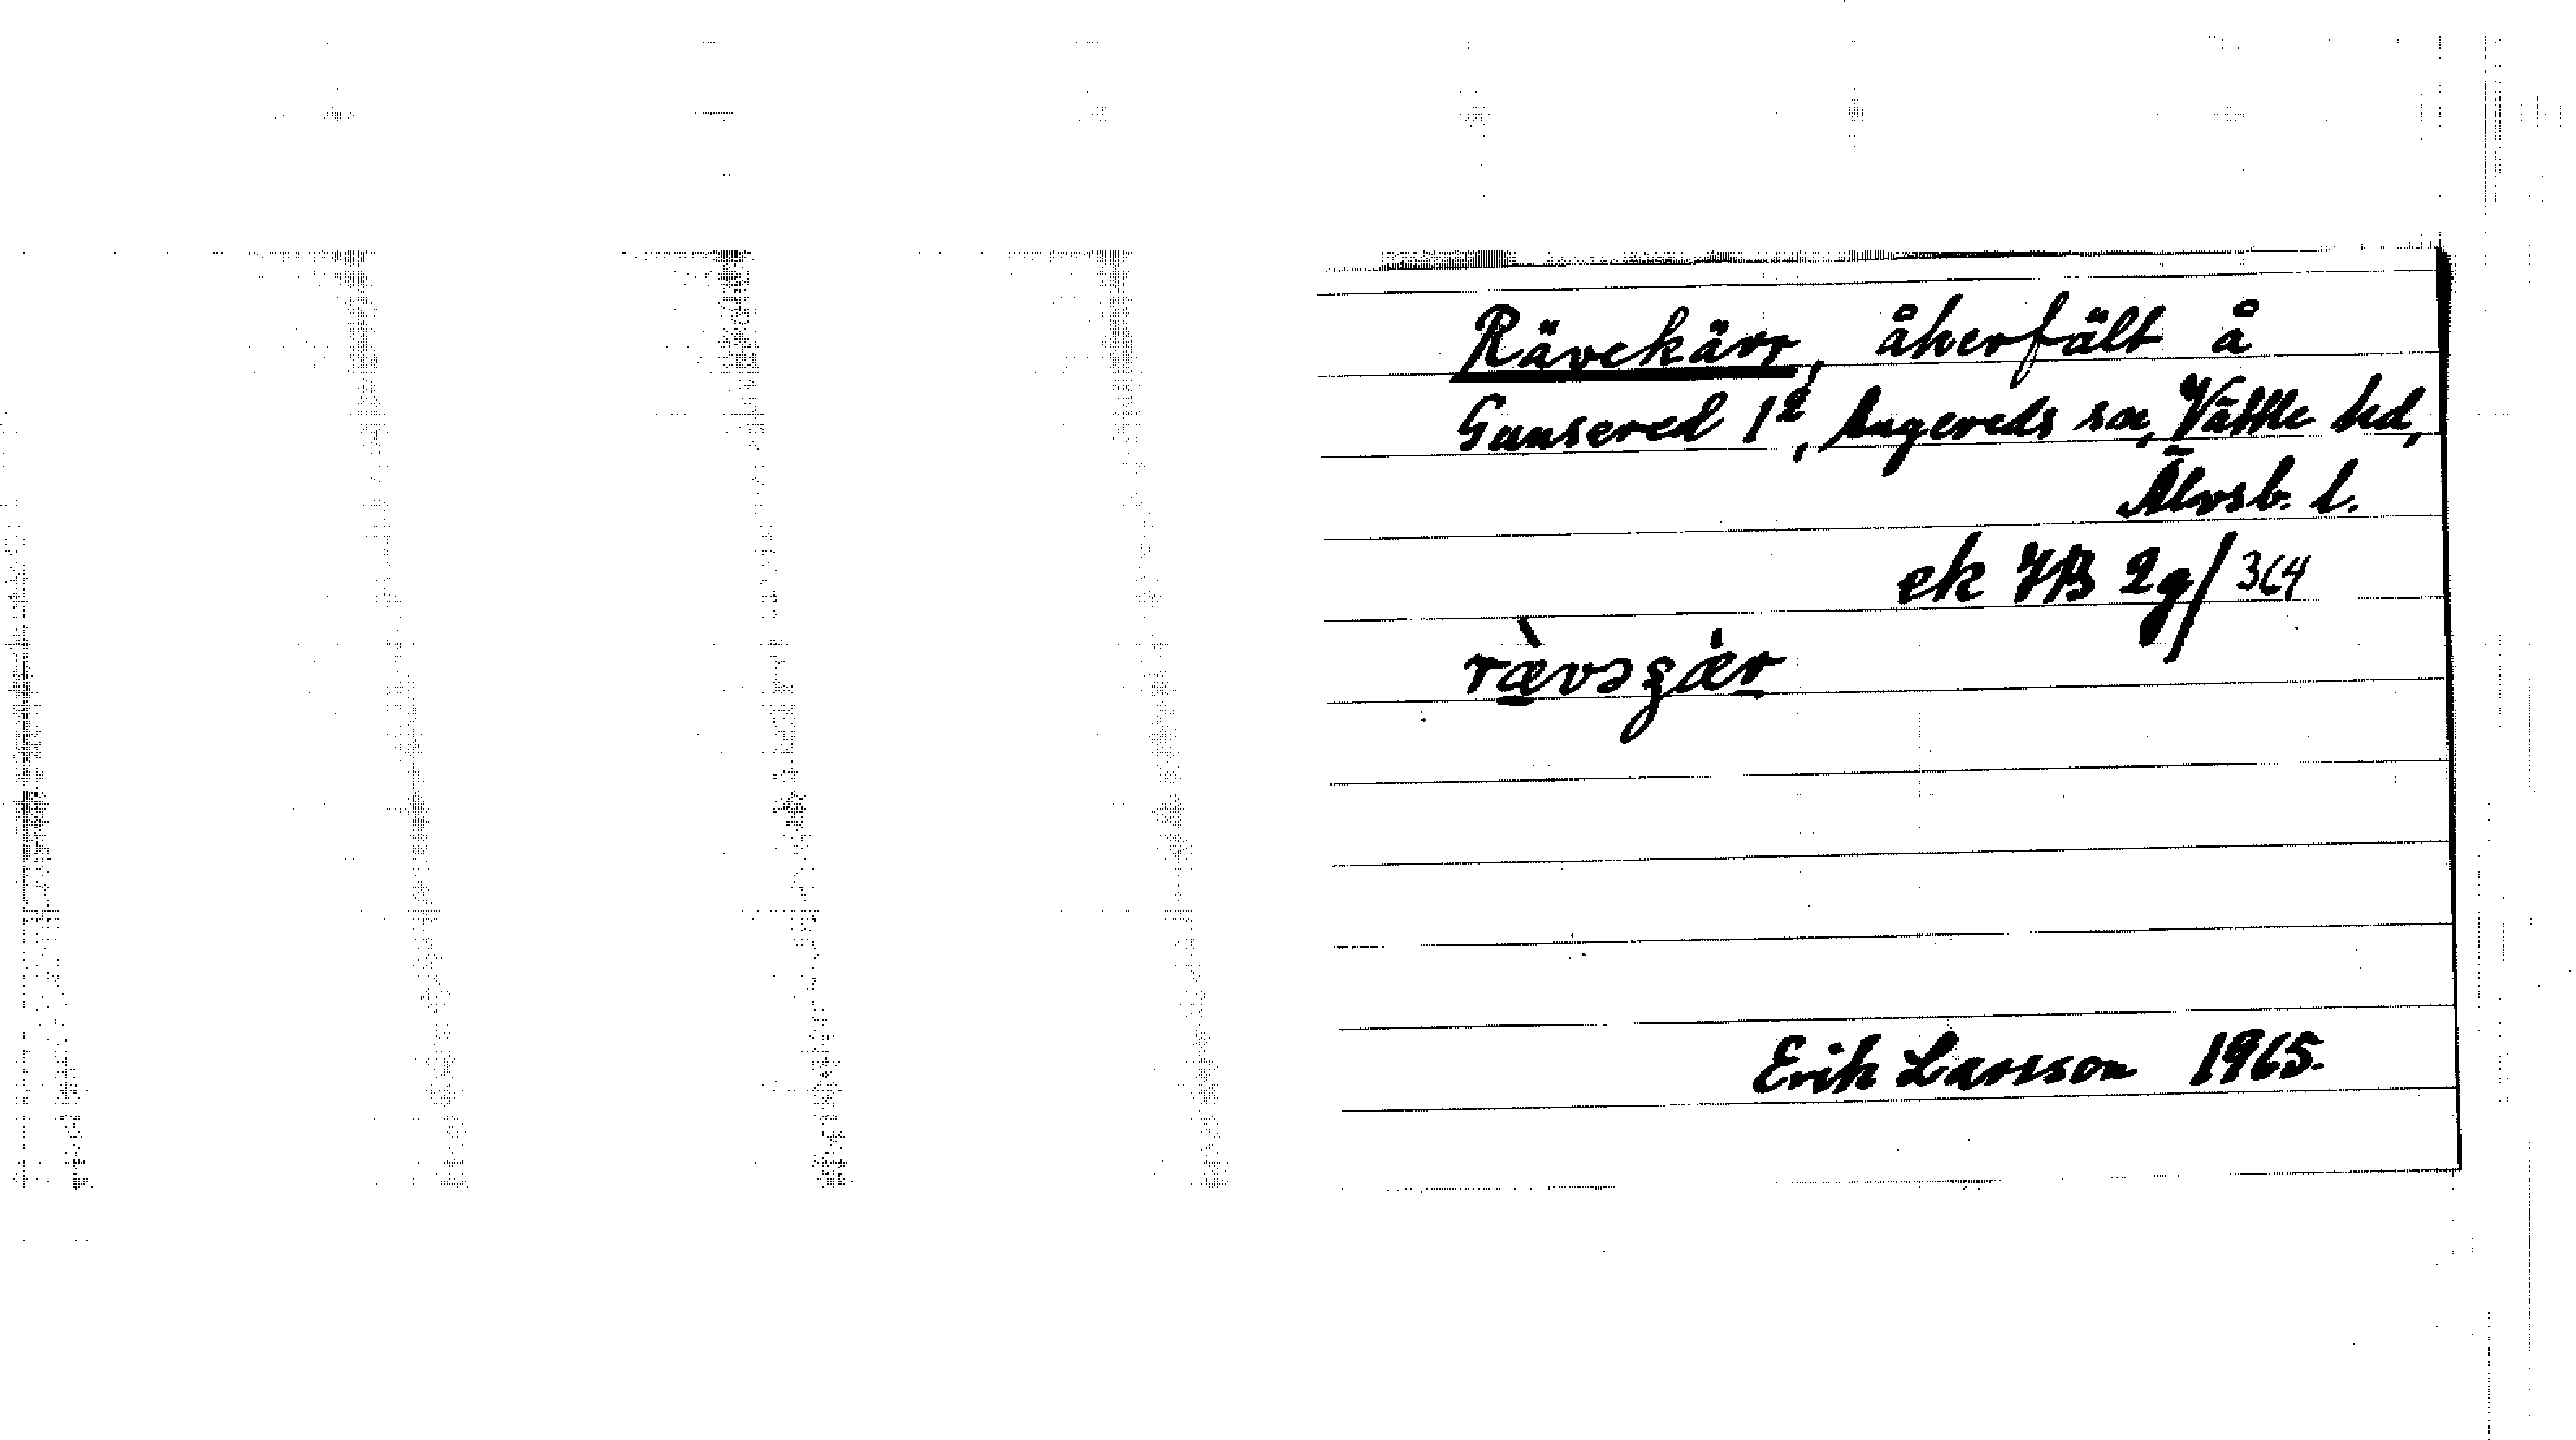 Rävekärr, åkerfält å
Gunsered 1², Angereds sn, Vättle hd,
Älvsb. l.
ek 7B 2g/364
Erik Larsson 1965.